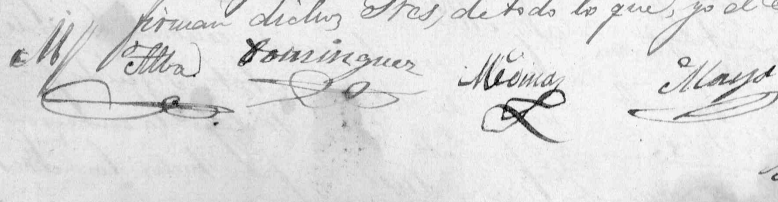 firman dichos Sres, de todo lo que, yo el
M Alba Dominguez Medina Mayo